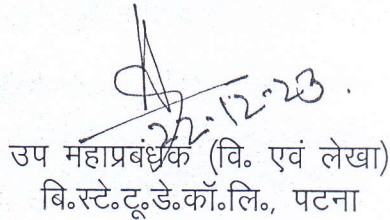 22.12.23.
उप महाप्रबंधक (वि॰ एवं लेखा)
बि॰स्टे॰टू॰डे॰कॉ॰लि॰, पटना